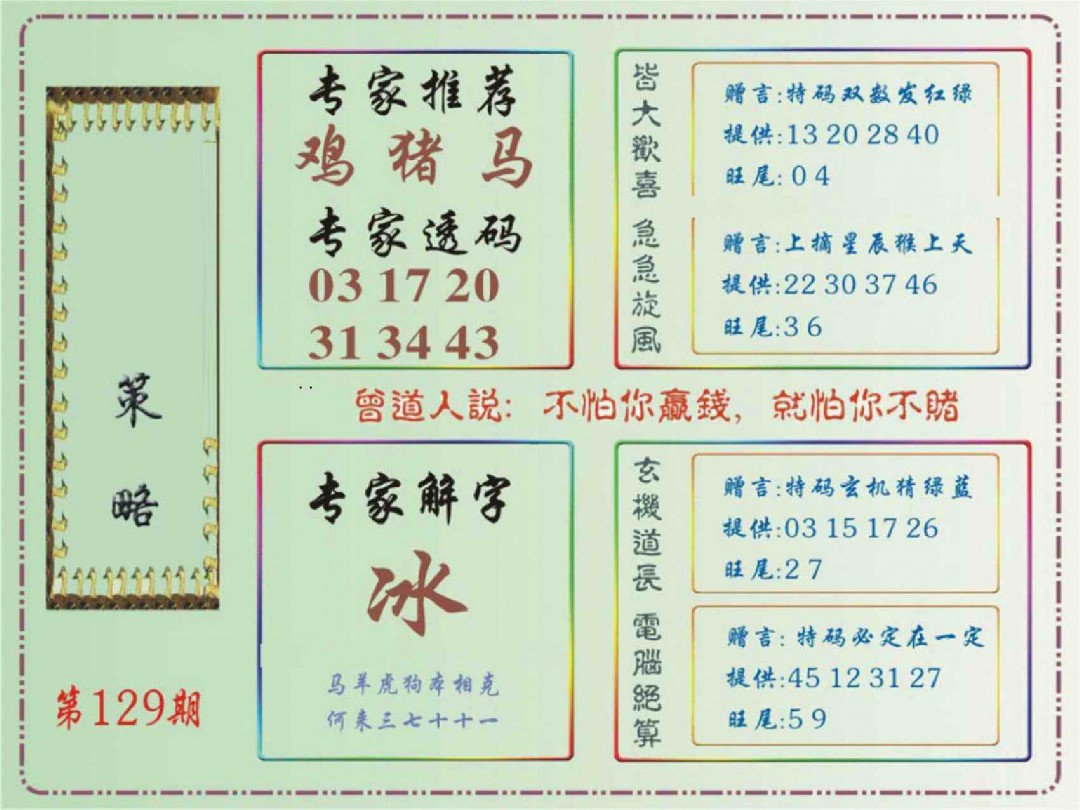 策
略
第129期
专家推荐
鸡 猪 马
专家透码
03 17 20
31 34 43
皆大歡喜
赠言:特码双数发红绿
提供:13 20 28 40
旺尾:0 4
急急旋風
赠言:上摘星辰猴上天
提供:22 30 37 46
旺尾:3 6
曾道人説: 不怕你贏錢, 就怕你不賭
专家解字
冰
马羊虎狗本相克
何来三七十十一
玄機道長
赠言:特码玄机猜绿蓝
提供:03 15 17 26
旺尾:2 7
電腦絕算
赠言: 特码必定在一定
提供:45 12 31 27
旺尾:5 9